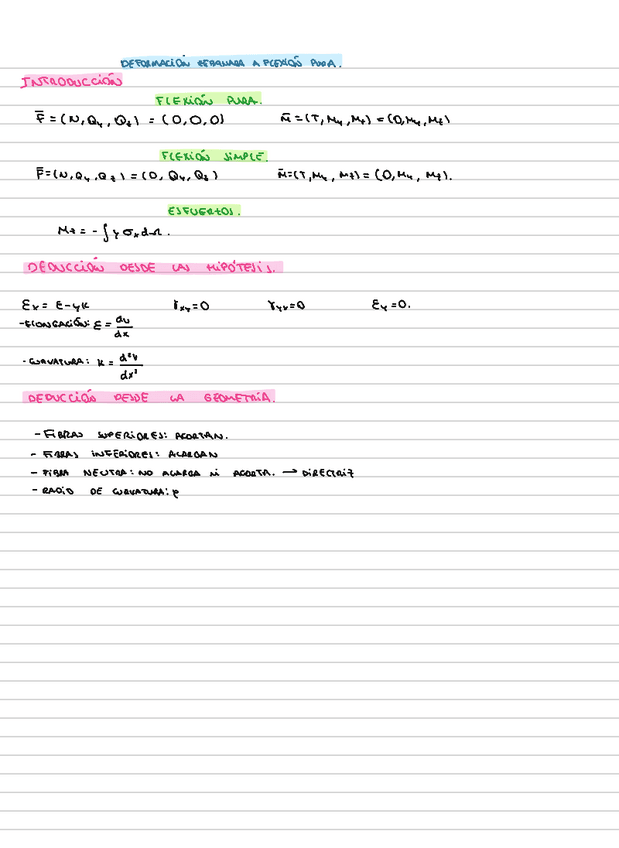 DEFORMACIÓN REBANADA A FLEXIÓN PURA.
INTRODUCCIÓN
FLEXIÓN PURA.
F̄ = (N, Qy, Qz) = (0,0,0) M̄ = (T, My, Mz) = (0, My, Mz)
FLEXIÓN SIMPLE.
F̄ = (N, Qy, Qz) = (0, Qy, Qz) M̄ = (T, My, Mz) = (0, My, Mz).
ESFUERZOS.
Mz = - ∫ y σx dΩ.
DEDUCCIÓN DESDE LAS HIPÓTESIS.
Ɛx = Ɛ - yk γxy = 0 γyx = 0 Ɛy = 0.
- ELONGACIÓN: Ɛ = du/dx
- CURVATURA: k = d²v/dx²
DEDUCCIÓN DESDE LA GEOMETRÍA.
- FIBRAS SUPERIORES: ACORTAN.
- FIBRAS INFERIORES: ALARGAN
- FIBRA NEUTRA: NO ALARGA NI ACORTA. → DIRECTRIZ
- RADIO DE CURVATURA: ρ